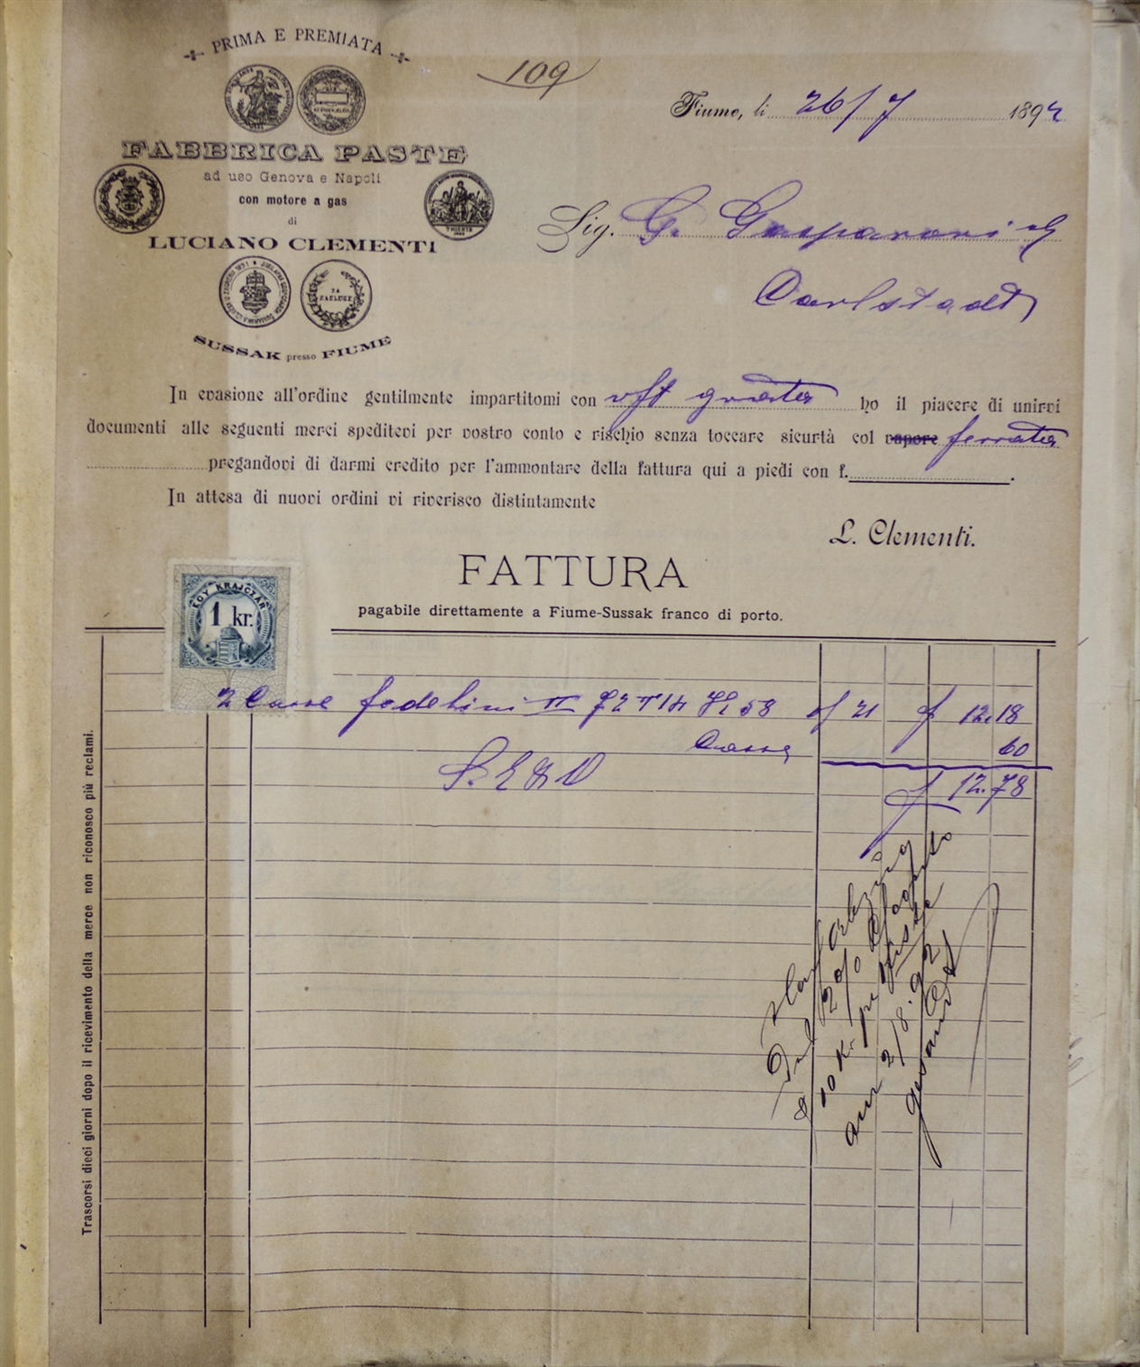 109
PRIMA E PREMIATA
FABBRICA PASTE
ad uso Genova e Napoli
con motore a gas
di
LUCIANO CLEMENTI
SUSSAK presso FIUME
Fiume, li 26/7 1892
Sig. G. Gasparoni
Carlstadt
In evasione all'ordine gentilmente impartitomi con ho il piacere di unirvi
documenti alle seguenti merci speditevi per vostro conto e rischio senza toccare sicurtà col vapore ferrata
pregandovi di darmi credito per l'ammontare della fattura qui a piedi con f.
In attesa di nuovi ordini vi riverisco distintamente
L. Clementi.
FATTURA
pagabile direttamente a Fiume-Sussak franco di porto.
EGY KRAJCZÁR
1 kr.
2 Casse fedelini II 58 f 21 f 12.18
Casse 60
S. E & O
f 12.78
2%
10 Kr. per Kiste
am 2/8.92
gesandt
Trascorsi dieci giorni dopo il ricevimento della merce non riconosco più reclami.